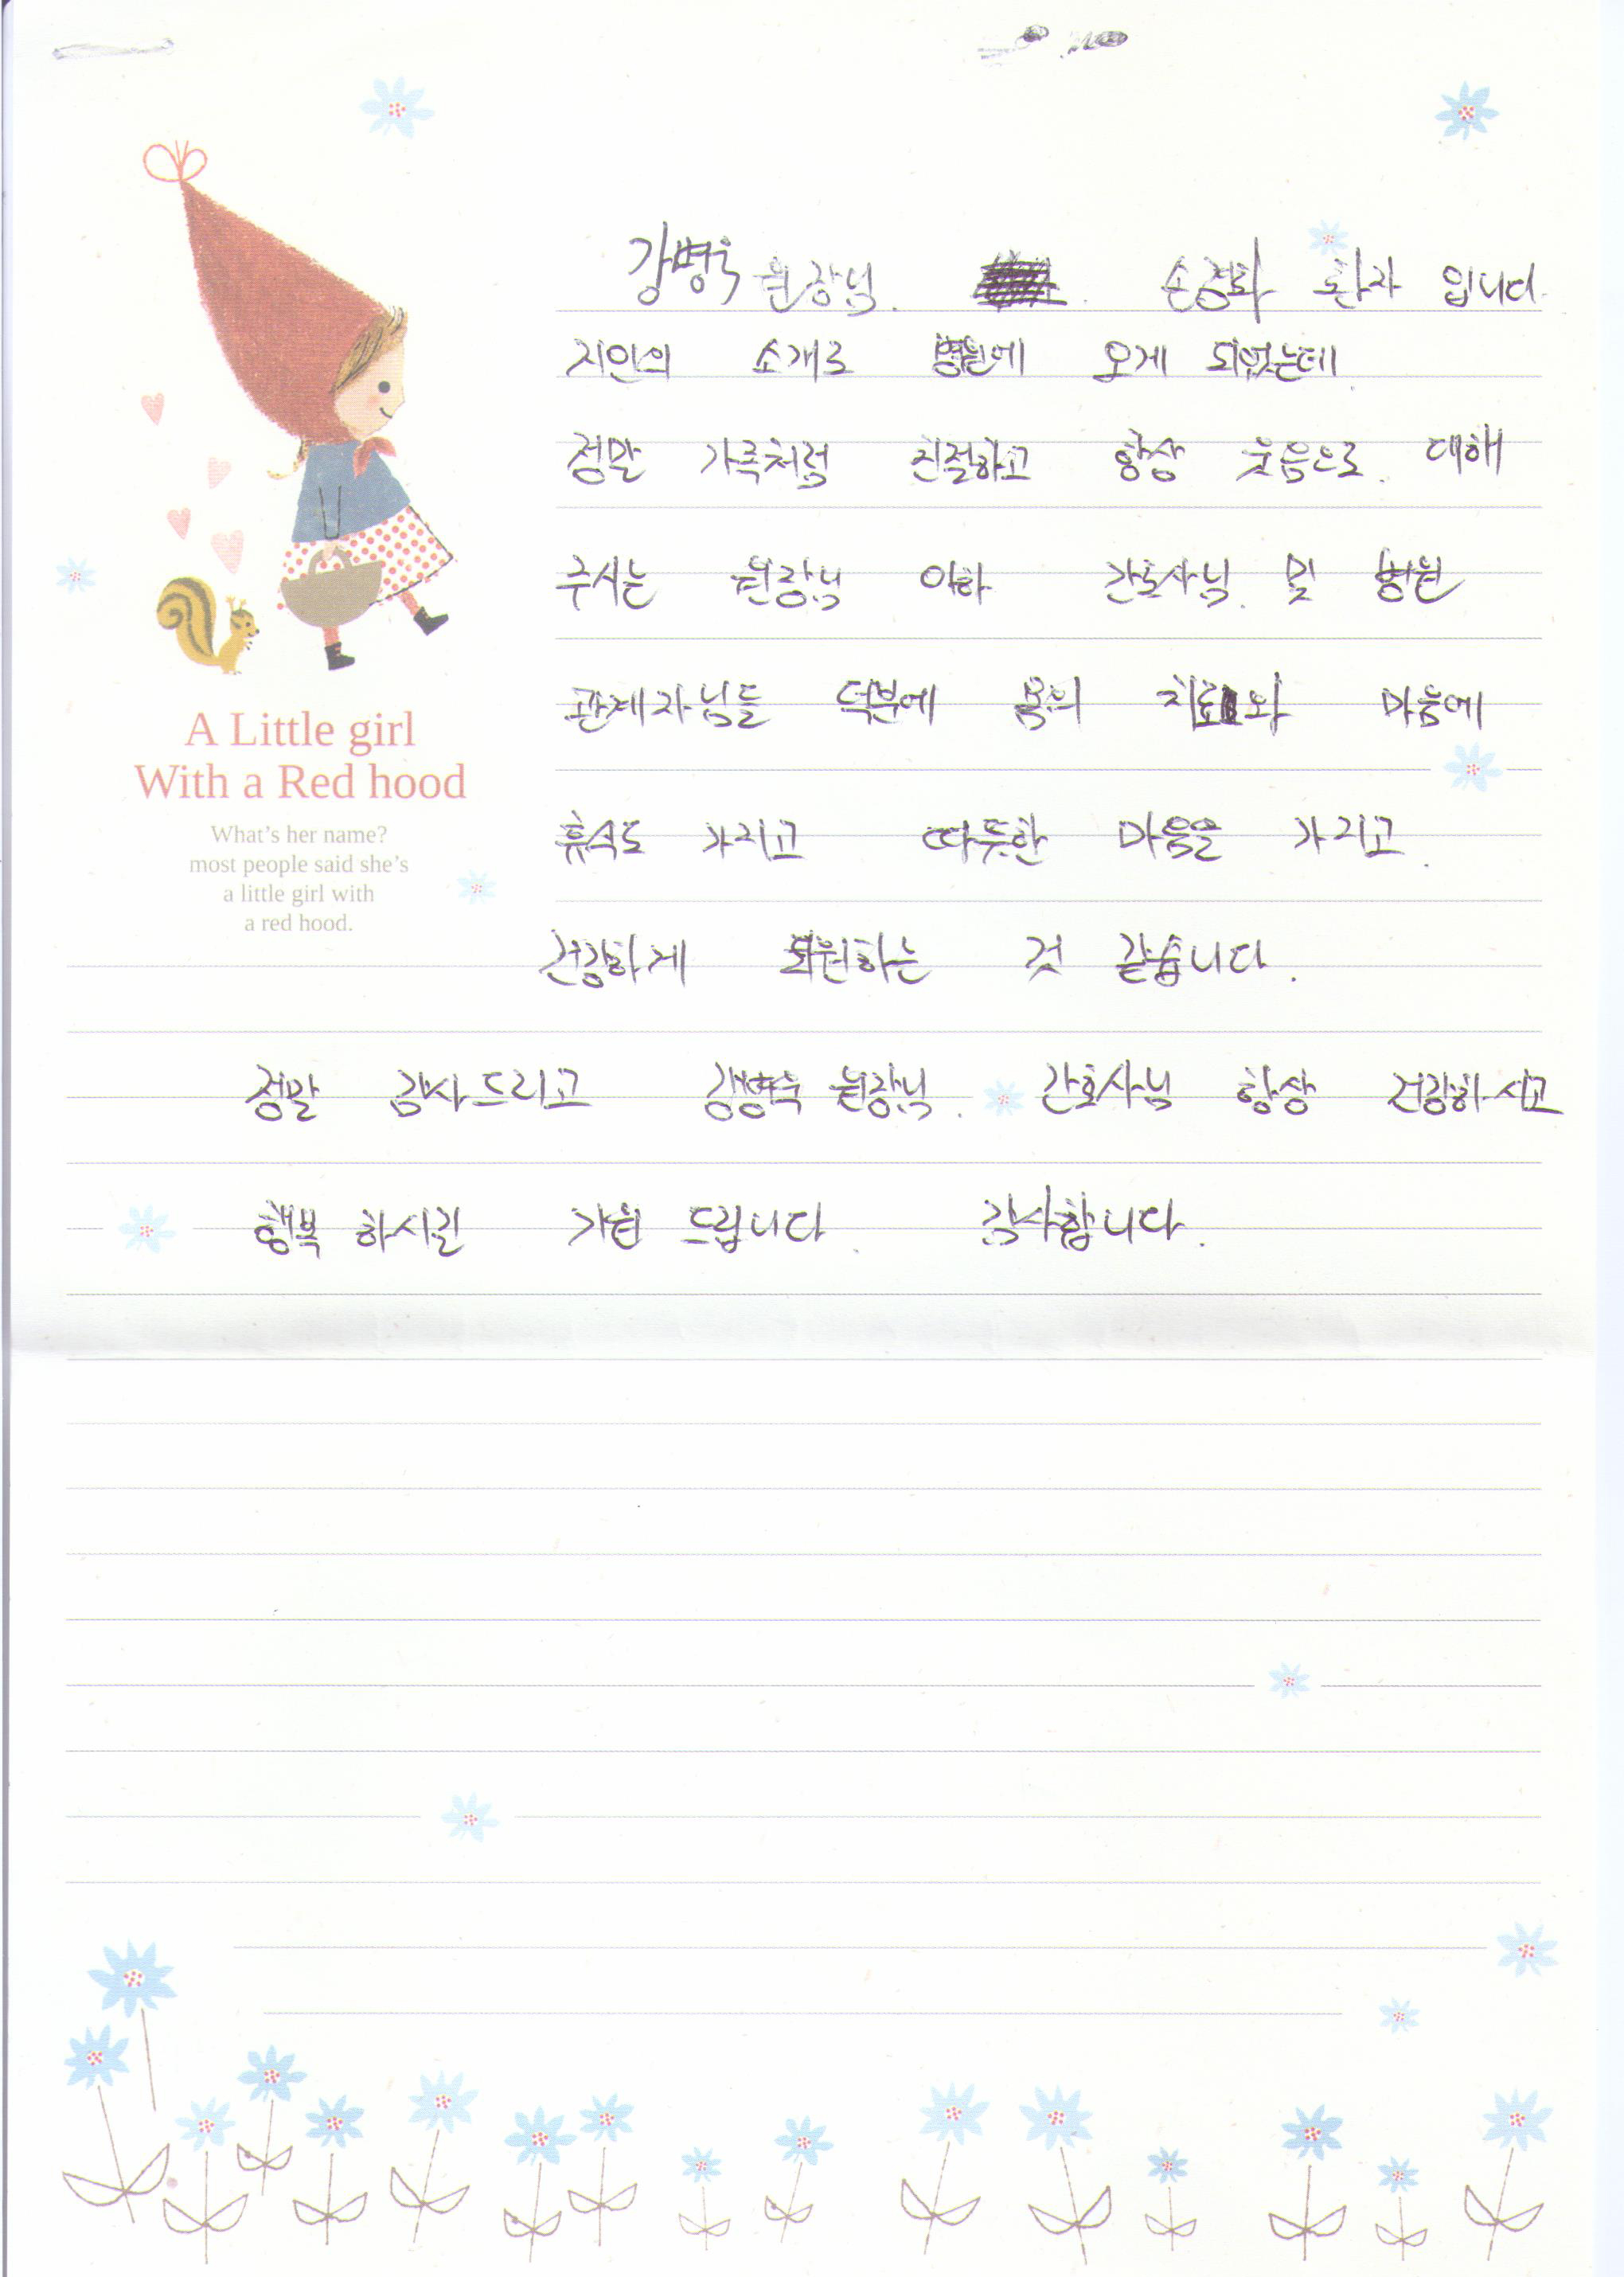 강병욱 원장님. 손경화 환자 입니다.
지인의 소개로 병원에 오게 되었는데
정말 가족처럼 친절하고 항상 웃음으로. 대해
주시는 원장님 이하 간호사님. 및 병원
관계자님들 덕분에 몸의 치료와 마음에
휴식도 가지고 따뜻한 마음을 가지고.
건강하게 퇴원하는 것 같습니다.
정말 감사드리고 강병욱 원장님. 간호사님 항상 건강하시고
행복 하시길 기원 드립니다. 감사합니다.
A Little girl
With a Red hood
What's her name?
most people said she's
a little girl with
a red hood.